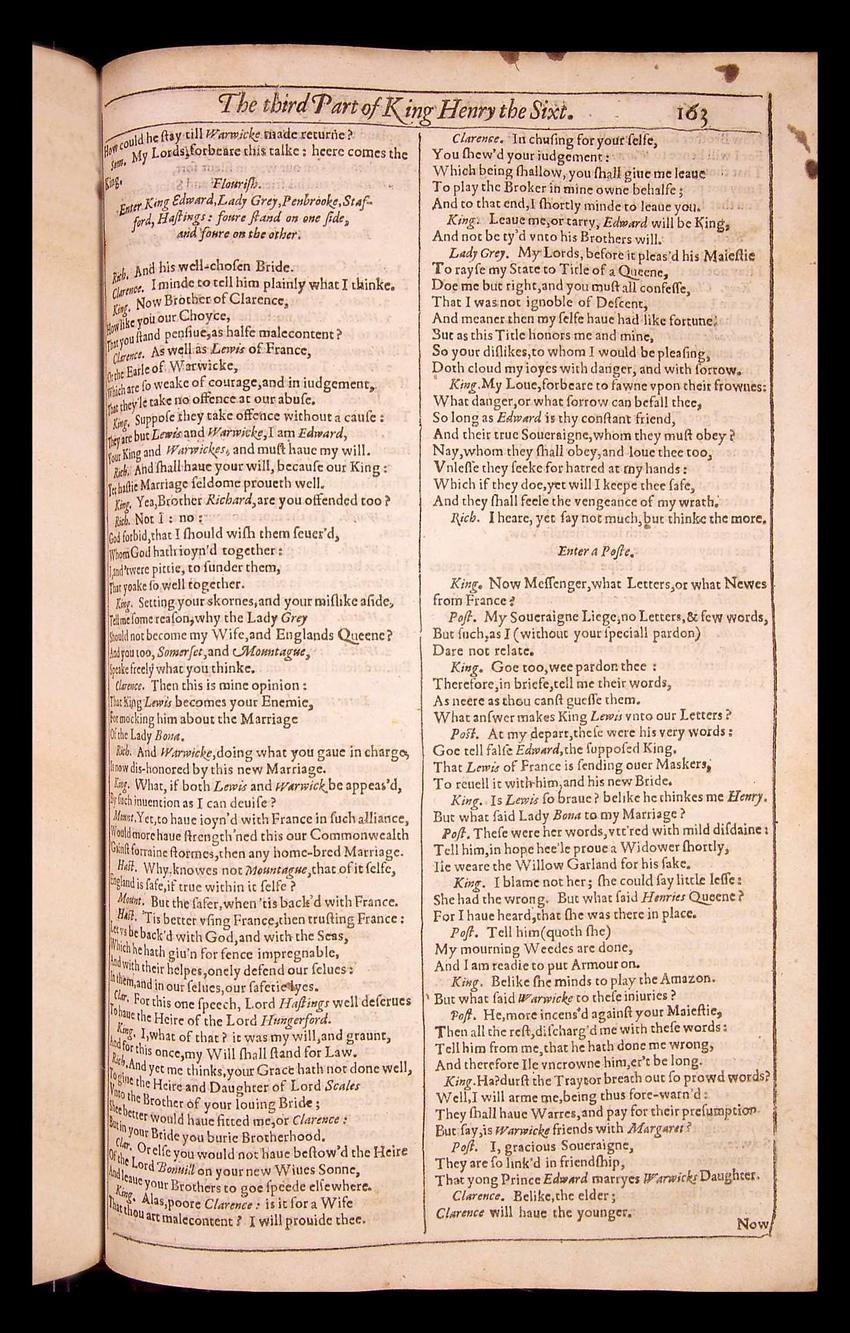 The third Part of King Henry the Sixt. 163
How could he ſtay till Warwicke made returne?
Som. My Lords, forbeare this talke: heere comes the
King.
Flouriſh.
Enter King Edward, Lady Grey, Penbrooke, Staf-
ford, Haſtings: foure ſtand on one ſide,
and foure on the other.
Rich. And his well-choſen Bride.
Clarence. I minde to tell him plainly what I thinke.
King. Now Brother of Clarence,
How like you our Choyce,
That you ſtand penſiue, as halfe malecontent?
Clarence. As well as Lewis of France,
Or the Earle of Warwicke,
Which are ſo weake of courage, and in iudgement,
That they'le take no offence at our abuſe.
King. Suppoſe they take offence without a cauſe:
They are but Lewis and Warwicke, I am Edward,
Your King and Warwickes, and muſt haue my will.
Rich. And ſhall haue your will, becauſe our King:
Yet haſtie Marriage ſeldome proueth well.
King. Yea, Brother Richard, are you offended too?
Rich. Not I: no:
God forbid, that I ſhould wiſh them ſeuer'd,
Whom God hath ioyn'd together:
I, and 'twere pittie, to ſunder them,
That yoake ſo well together.
King. Setting your skornes, and your miſlike aſide,
Tell me ſome reaſon, why the Lady Grey
Should not become my Wife, and Englands Queene?
And you too, Somerſet, and Mountague,
Speake freely what you thinke.
Clarence. Then this is mine opinion:
That King Lewis becomes your Enemie,
For mocking him about the Marriage
Of the Lady Bona.
Rich. And Warwicke, doing what you gaue in charge,
Is now dis-honored by this new Marriage.
King. What, if both Lewis and Warwick be appeas'd,
By ſuch inuention as I can deuiſe?
Mount. Yet, to haue ioyn'd with France in ſuch alliance,
Would more haue ſtrength'ned this our Commonwealth
'Gainſt forraine ſtormes, then any home-bred Marriage.
Haſt. Why, knowes not Mountague, that of it ſelfe,
England is ſafe, if true within it ſelfe?
Mount. But the ſafer, when 'tis back'd with France.
Haſt. 'Tis better vſing France, then truſting France:
Let vs be back'd with God, and with the Seas,
Which he hath giu'n for fence impregnable,
And with their helpes, onely defend our ſelues:
In them, and in our ſelues, our ſafetie lyes.
Clar. For this one ſpeech, Lord Haſtings well deſerues
To haue the Heire of the Lord Hungerford.
King. I, what of that? it was my will, and graunt,
And for this once, my Will ſhall ſtand for Law.
Rich. And yet me thinks, your Grace hath not done well,
To giue the Heire and Daughter of Lord Scales
Vnto the Brother of your louing Bride;
Shee better would haue fitted me, or Clarence:
But in your Bride you burie Brotherhood.
Clar. Or elſe you would not haue beſtow'd the Heire
Of the Lord Bonuill on your new Wiues Sonne,
And leaue your Brothers to goe ſpeede elſewhere.
King. Alas, poore Clarence: is it for a Wife
That thou art malecontent? I will prouide thee.
Clarence. In chuſing for your ſelfe,
You ſhew'd your iudgement:
Which being ſhallow, you ſhall giue me leaue
To play the Broker in mine owne behalfe;
And to that end, I ſhortly minde to leaue you.
King. Leaue me, or tarry, Edward will be King,
And not be ty'd vnto his Brothers will.
Lady Grey. My Lords, before it pleas'd his Maieſtie
To rayſe my State to Title of a Queene,
Doe me but right, and you muſt all confeſſe,
That I was not ignoble of Deſcent,
And meaner then my ſelfe haue had like fortune.
But as this Title honors me and mine,
So your diſlikes, to whom I would be pleaſing,
Doth cloud my ioyes with danger, and with ſorrow.
King. My Loue, forbeare to fawne vpon their frownes:
What danger, or what ſorrow can befall thee,
So long as Edward is thy conſtant friend,
And their true Soueraigne, whom they muſt obey?
Nay, whom they ſhall obey, and loue thee too,
Vnleſſe they ſeeke for hatred at my hands:
Which if they doe, yet will I keepe thee ſafe,
And they ſhall feele the vengeance of my wrath.
Rich. I heare, yet ſay not much, but thinke the more.
Enter a Poſte.
King. Now Meſſenger, what Letters, or what Newes
from France?
Poſt. My Soueraigne Liege, no Letters, & few words,
But ſuch, as I (without your ſpeciall pardon)
Dare not relate.
King. Goe too, wee pardon thee:
Therefore, in briefe, tell me their words,
As neere as thou canſt gueſſe them.
What anſwer makes King Lewis vnto our Letters?
Poſt. At my depart, theſe were his very words:
Goe tell falſe Edward, the ſuppoſed King,
That Lewis of France is ſending ouer Maskers,
To reuell it with him, and his new Bride.
King. Is Lewis ſo braue? belike he thinkes me Henry.
But what ſaid Lady Bona to my Marriage?
Poſt. Theſe were her words, vtt'red with mild diſdaine:
Tell him, in hope hee'le proue a Widower ſhortly,
Ile weare the Willow Garland for his ſake.
King. I blame not her; ſhe could ſay little leſſe:
She had the wrong. But what ſaid Henries Queene?
For I haue heard, that ſhe was there in place.
Poſt. Tell him (quoth ſhe)
My mourning Weedes are done,
And I am readie to put Armour on.
King. Belike ſhe minds to play the Amazon.
But what ſaid Warwicke to theſe iniuries?
Poſt. He, more incens'd againſt your Maieſtie,
Then all the reſt, diſcharg'd me with theſe words:
Tell him from me, that he hath done me wrong,
And therefore Ile vncrowne him, er't be long.
King. Ha? durſt the Traytor breath out ſo prowd words?
Well, I will arme me, being thus fore-warn'd:
They ſhall haue Warres, and pay for their preſumption.
But ſay, is Warwicke friends with Margaret?
Poſt. I, gracious Soueraigne,
They are ſo link'd in friendſhip,
That yong Prince Edward marryes Warwicks Daughter.
Clarence. Belike, the elder;
Clarence will haue the younger.
Now